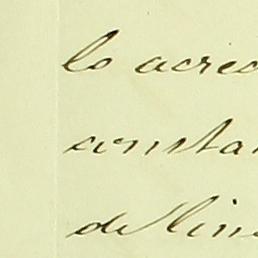 lo acred
constan
de lin